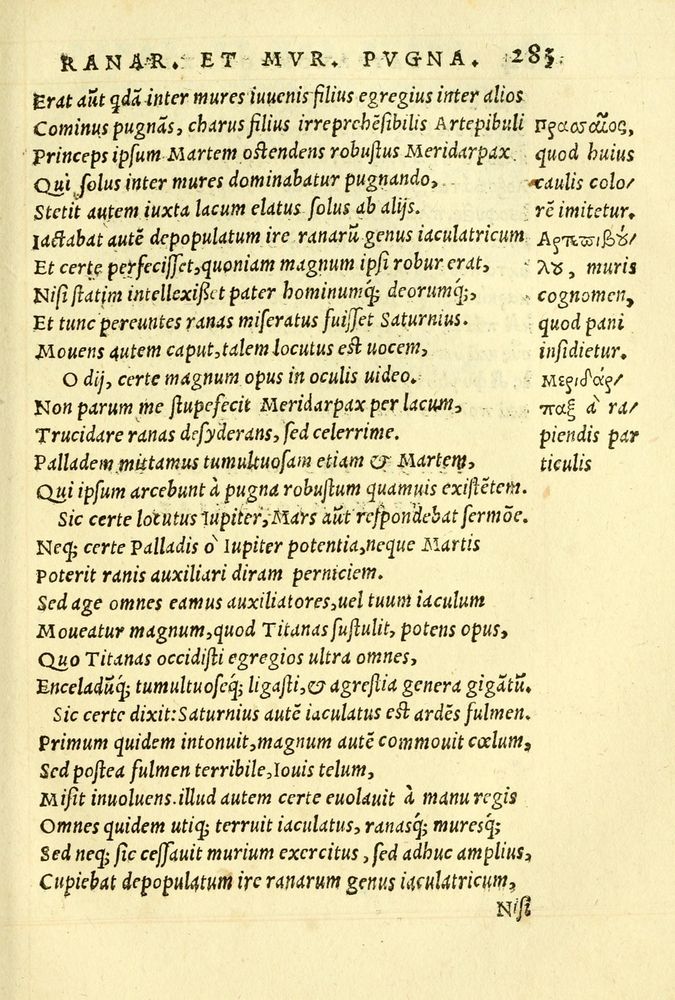 RANAR. ET MVR. PVGNA. 285.
Erat aũt qdã inter mures iuuenis filius egregius inter alios
Cominus pugnãs, charus filius irreprehẽsibilis Artepibuli
Princeps ipsum Martem ostendens robustus Meridarpax
Qui solus inter mures dominabatur pugnando,
Stetit autem iuxta lacum elatus solus ab alijs.
Iactabat autẽ depopulatum ire ranarũ genus iaculatricum
Et certe perfecisset, quoniam magnum ipsi robur erat,
Nisi statim intellexißet pater hominumq́; deorumq́;,
Et tunc pereuntes ranas miseratus fuisset Saturnius.
Mouens autem caput, talem locutus est uocem,
O dij, certe magnum opus in oculis uideo.
Non parum me stupefecit Meridarpax per lacum,
Trucidare ranas desyderans, sed celerrime.
Palladem mittamus tumultuosam etiam & Martem,
Qui ipsum arcebunt à pugna robustum quamuis existẽtem.
Sic certe locutus Iupiter, Mars aũt respondebat sermõe.
Neq; certe Palladis ò Iupiter potentia, neque Martis
Poterit ranis auxiliari diram perniciem.
Sed age omnes eamus auxiliatores, uel tuum iaculum
Moueatur magnum, quod Titanas sustulit, potens opus,
Quo Titanas occidisti egregios ultra omnes,
Enceladũq́; tumultuoseq́; ligasti, & agrestia genera gigãtũ.
Sic certe dixit: Saturnius autẽ iaculatus est ardẽs fulmen.
Primum quidem intonuit, magnum autẽ commouit cœlum,
Sed postea fulmen terribile, Iouis telum,
Misit inuoluens. illud autem certe euolauit à manu regis
Omnes quidem utiq; terruit iaculatus, ranasq́; muresq́;
Sed neq; sic cessauit murium exercitus, sed adhuc amplius,
Cupiebat depopulatum ire ranarum genus iaculatricum,
Nisi
quod huius
caulis colo/
rẽ imitetur.
Αρτεπιβύ/
λυ, muris
cognomen,
quod pani
insidietur.
Μεριδάρ/
παξ à ra/
piendis par
ticulis